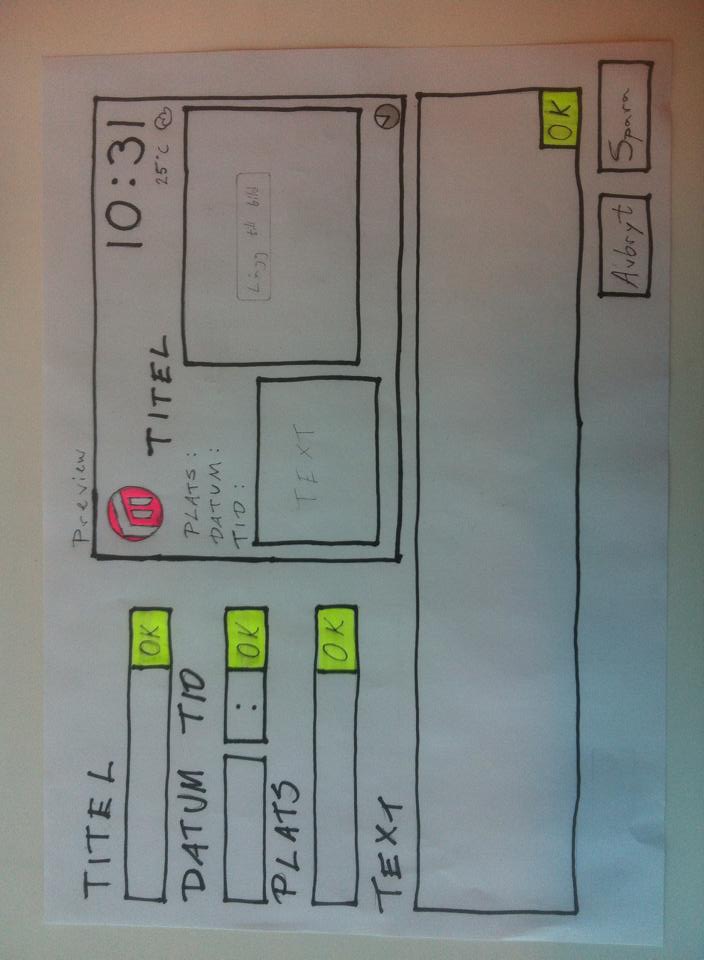 TITEL
OK
DATUM TID
: OK
PLATS
OK
TEXT
OK
Preview
10:31
25°C
TITEL
PLATS:
DATUM:
TID:
TEXT
Lägg till bild
Avbryt Spara